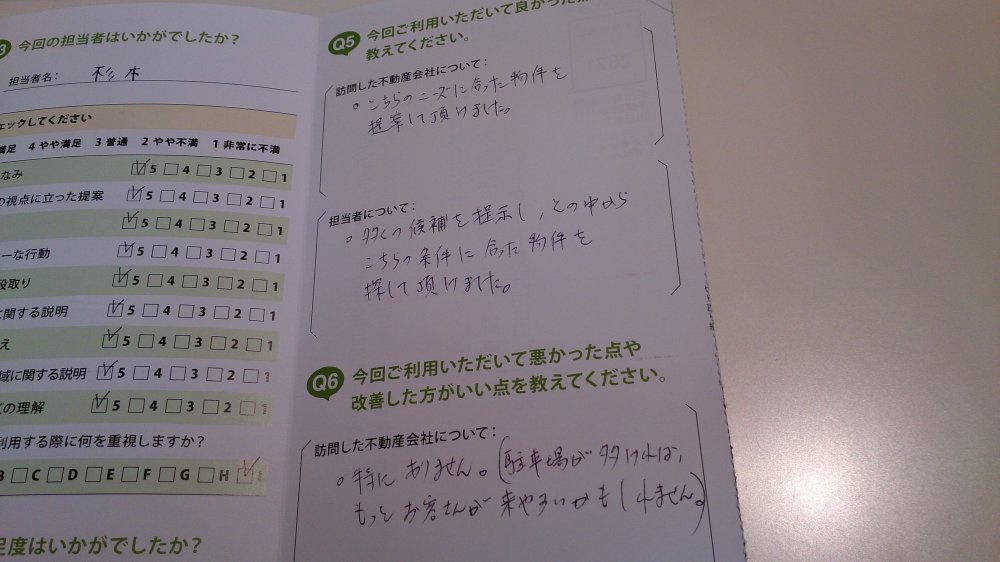 3 今回の担当者はいかがでしたか？
担当者名： 杉本
ェックしてください
満足 4 やや満足 3 普通 2 やや不満 1 非常に不満
なみ 5 4 3 2 1
の視点に立った提案 5 4 3 2 1
5 4 3 2 1
ーな行動 5 4 3 2 1
段取り 5 4 3 2 1
に関する説明 5 4 3 2 1
え 5 4 3 2 1
域に関する説明 5 4 3 2 1
ズの理解 5 4 3 2
利用する際に何を重視しますか？
B C D E F G H
足度はいかがでしたか？
Q5 今回ご利用いただいて良かった点
教えてください。
訪問した不動産会社について：
。こちらのニーズに合った物件を
提案して頂けました。
担当者について：
。多くの候補を提示し、その中から
こちらの条件に合った物件を
探して頂けました。
Q6 今回ご利用いただいて悪かった点や
改善した方がいい点を教えてください。
訪問した不動産会社について：
。特にありません。(駐車場が多ければ、
もっとお客さんが来やすいかもしれません。)